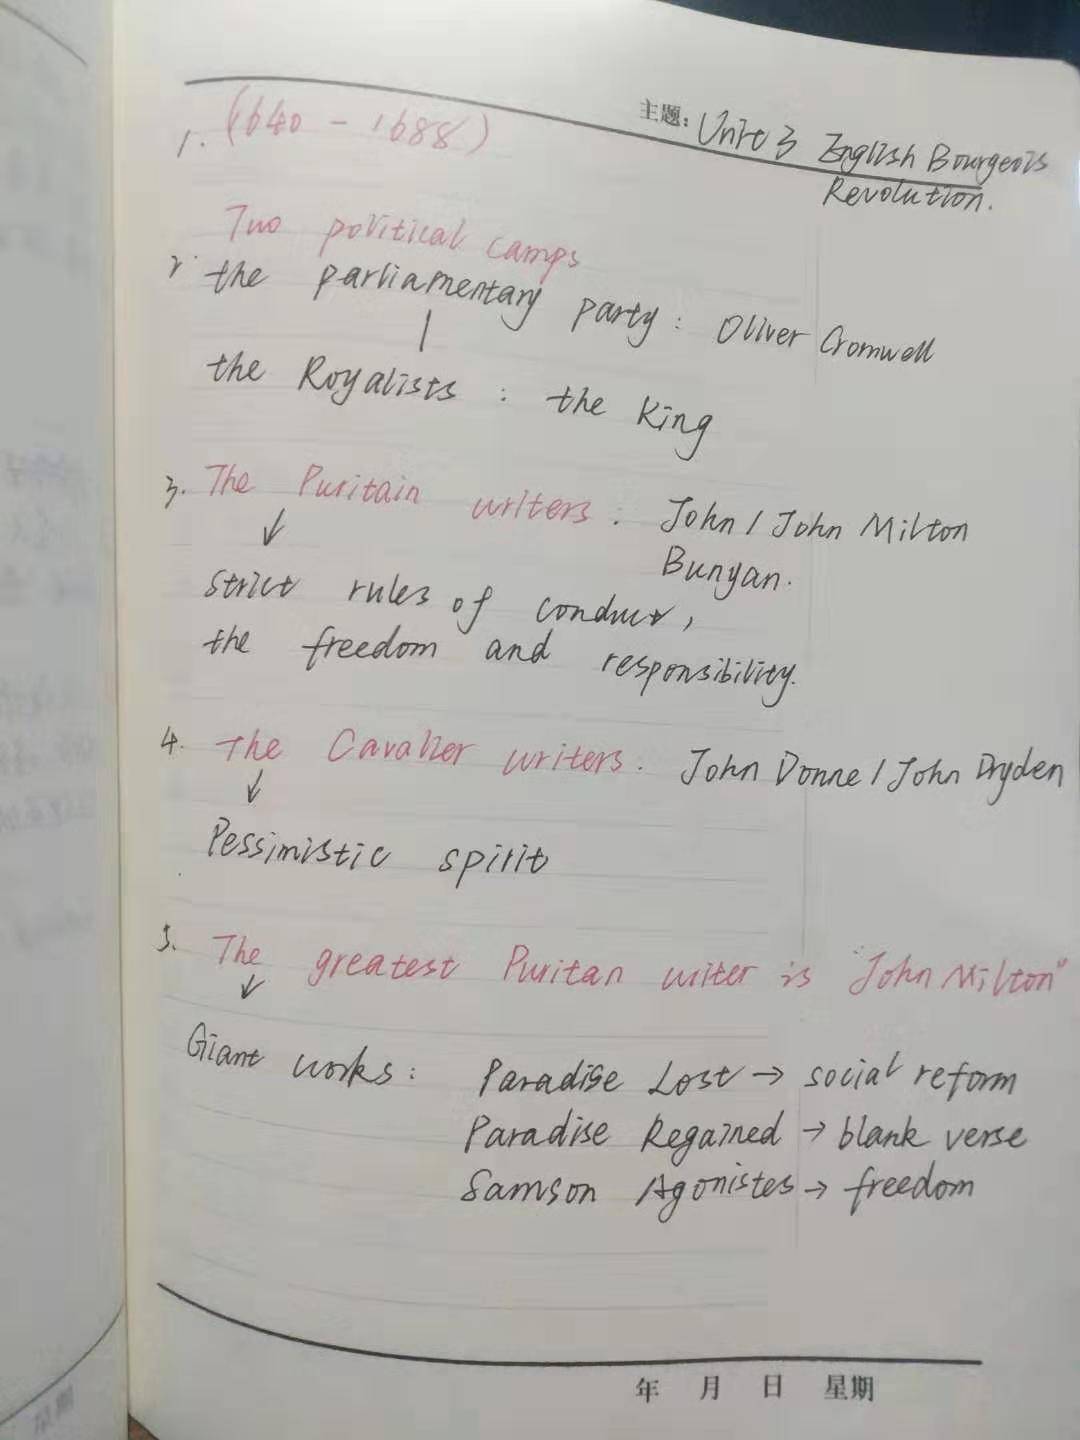 主题: Unit 3 English Bourgeois
Revolution.
1. (1640 - 1688)
Two political camps
2. the parliamentary party : Oliver Cromwell
the Royalists : the King
3. The Puritain writers : John / John Milton
Bunyan.
strict rules of conduct,
the freedom and responsibility.
4. The Cavalier writers : John Donne / John Dryden
Pessimistic spirit
5. The greatest Puritan writer is "John Milton"
Giant works : Paradise Lost → social reform
Paradise Regained → blank verse
Samson Agonistes → freedom
年 月 日 星期